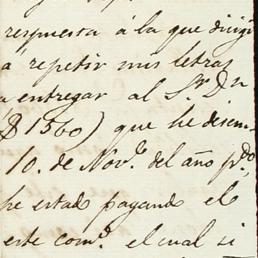 respuesta á la que dirigi
á repetir mis letras
a entregar al Sr. Dn
($ 1560) que he desem-
10. de Novе. del año pdo.
he estado pagando el
este como. el cual si